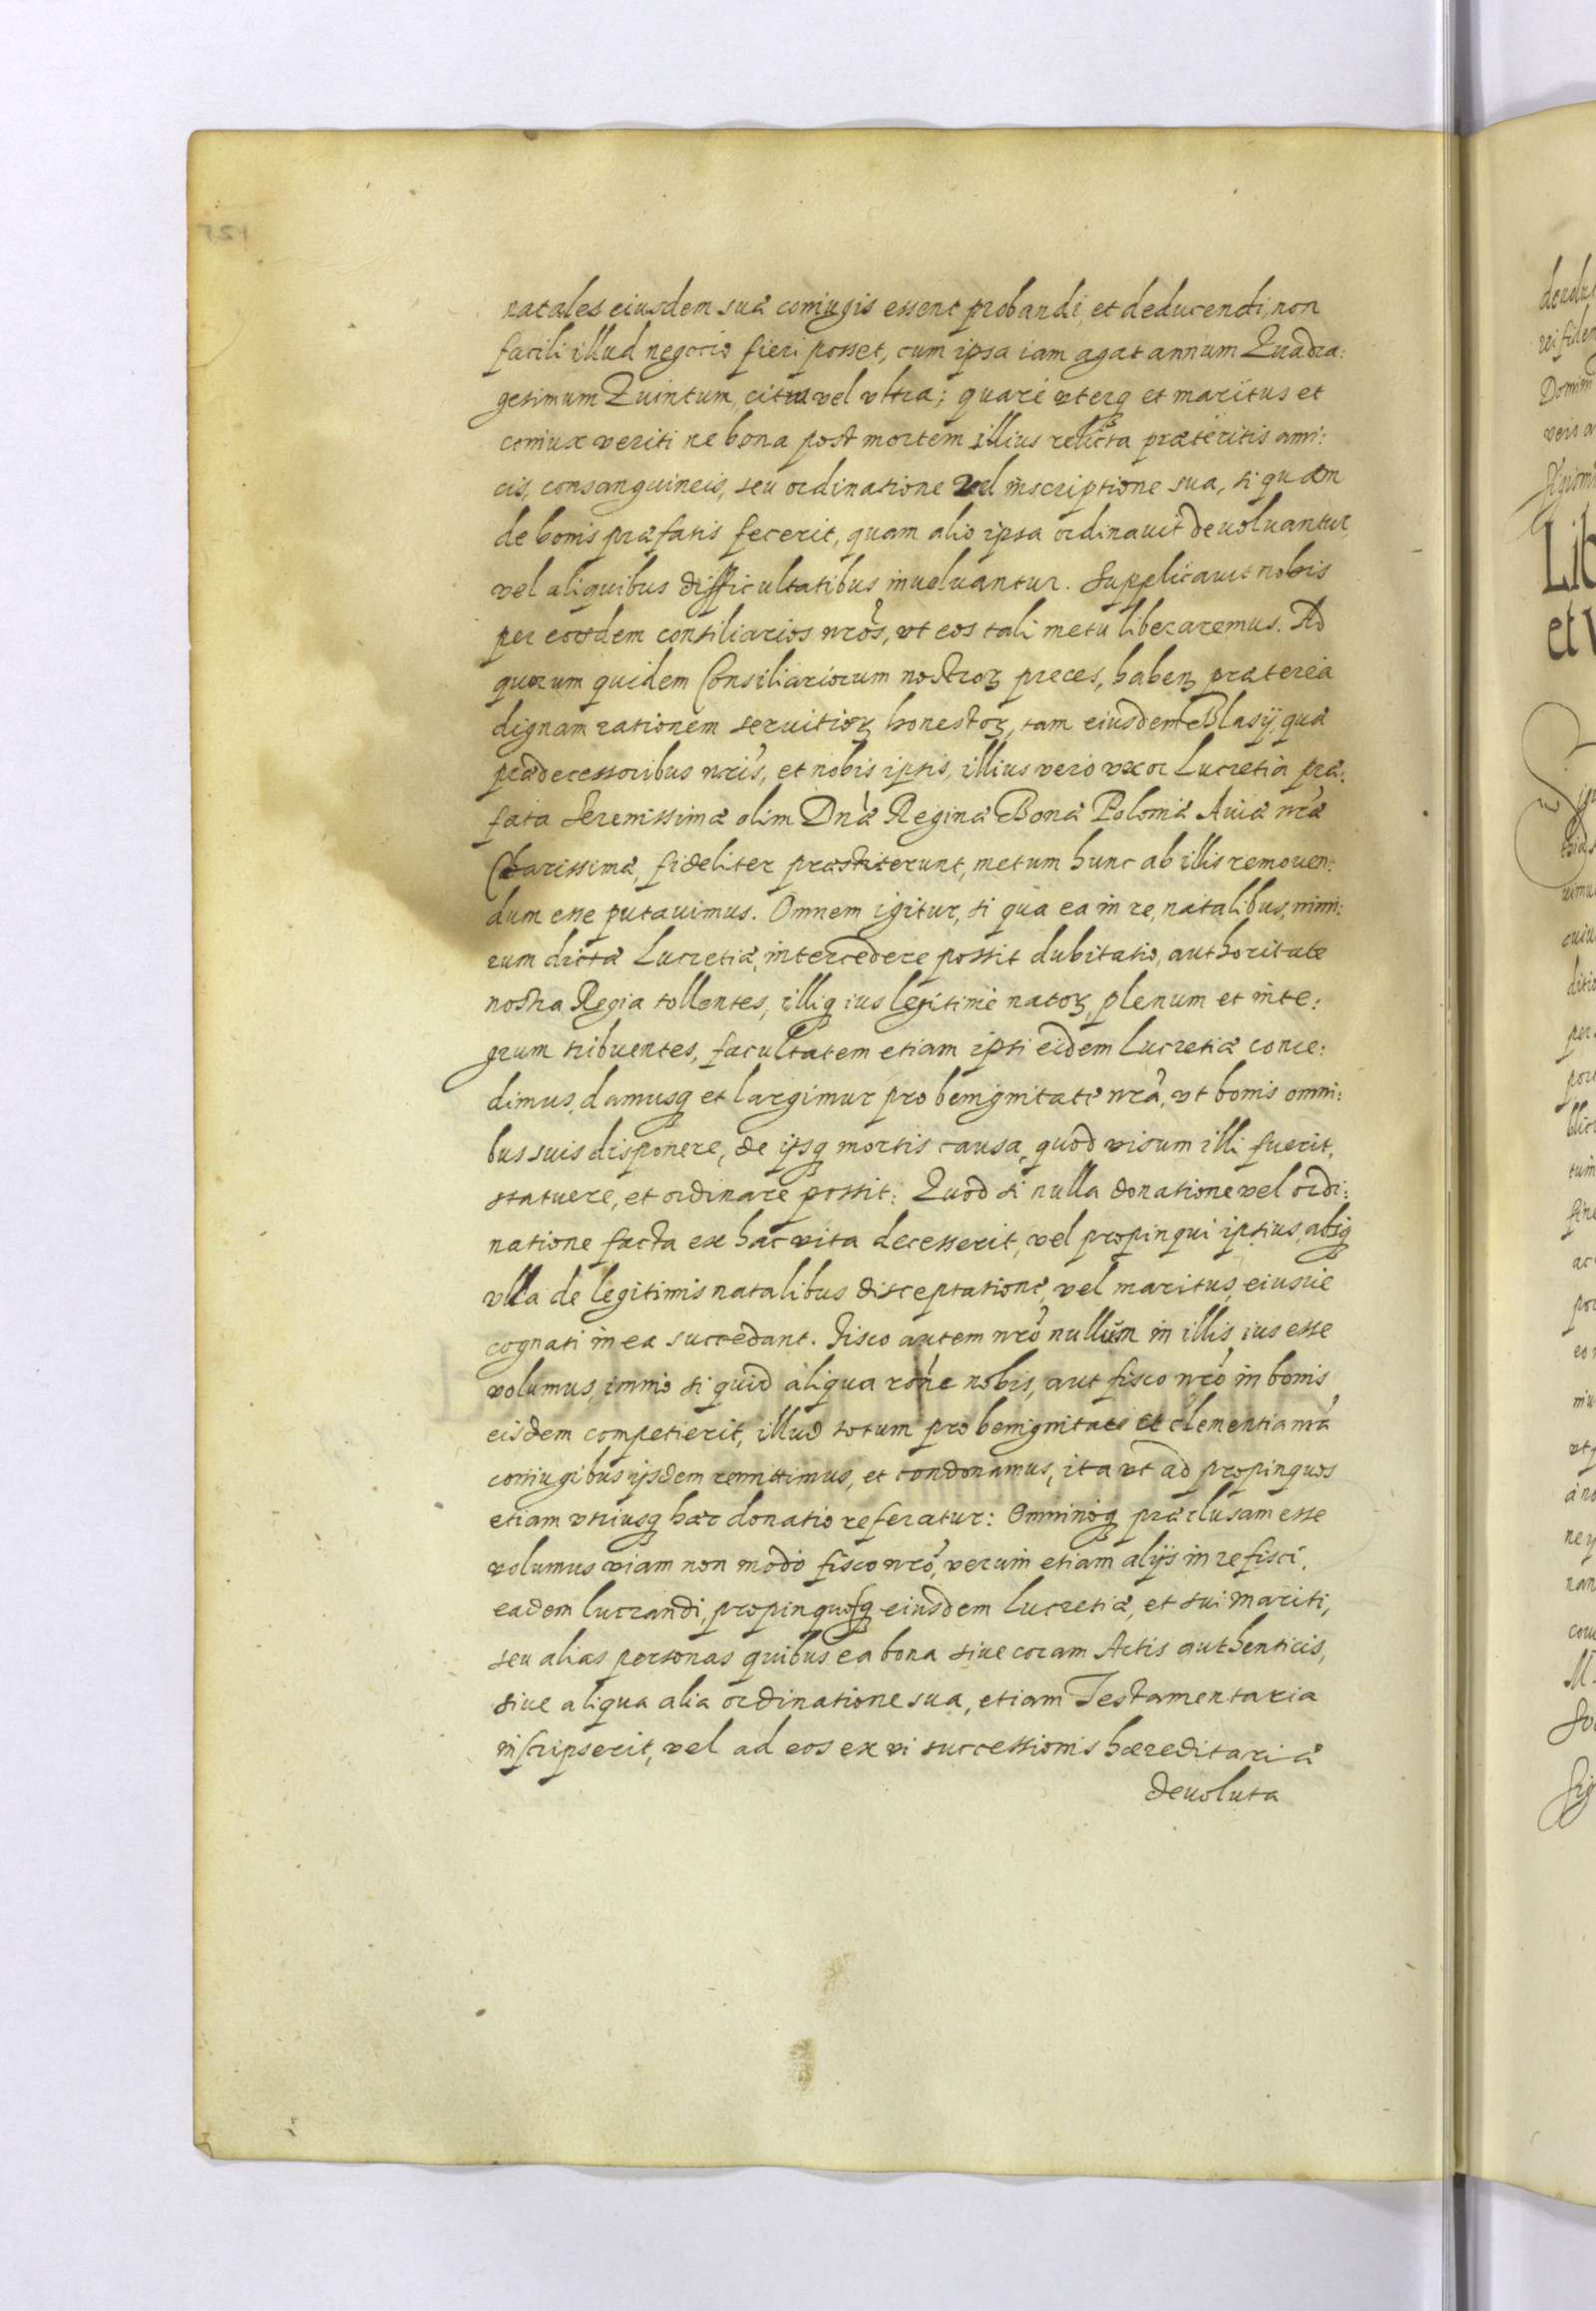 natales eiusdem suæ coniugis essent probandi, et deducendi, non
facili illud negocio fieri posset, cum ipsa iam agat annum Quadra:
gesimum Quintum, citra vel vltra; quare vterq et maritus et
coniux veriti ne bona post mortem illius relicta præteritis ami:
cis, consanguineis, seu ordinatione vel inscriptione sua, si quam
de bonis præfatis fecerit, quam alio ipsa ordinauit deuoluantur,
vel aliquibus difficultatibus inuoluantur. Supplicauit nobis
per eosdem consiliarios nros, vt eos tali metu liberaremus. Ad
quorum quidem Consiliariorum nostroꝝ preces, habenꝫ præterea
dignam rationem seruitioꝝ honestoꝝ, tam eiusdem Blasij, quæ
prædecessoribus nris, et nobis ipsis, illius vero vxor Lucretia præ:
fata Serenissimæ olim Dnæ Reginæ Bonæ Poloniæ Auiæ nræ
Charissimæ, fideliter præstiterunt, metum hunc ab illis remouen:
dum esse putauimus. Omnem igitur, si qua ea in re, natalibus, nimi:
rum dictæ Lucretiæ, intercedere possit dubitatio, authoritate
nostra Regia tollentes, illiq ius legitime natoꝝ, plenum et inte:
grum tribuentes, facultatem etiam ipsi eidem Lucretiæ conce:
dimus, damusq et largimur pro benignitate nra, vt bonis omni:
bus suis disponere, de ijsq mortis causa, quod visum illi fuerit,
statuere, et ordinare possit: Quod si nulla donatione vel ordi:
natione facta ex hac vita decesserit, vel propinqui ipsius, absq
vlla de legitimis natalibus disceptatione, vel maritus, eiusue
cognati in ea succedant. Fisco autem nro nullum in illis ius esse
volumus, immo si quid aliqua rone nobis, aut fisco nro in bonis
eisdem competierit, illud totum pro benignitate et clementia nra
coniugibus ijsdem remittimus, et condonamus, ita vt ad propinquos
etiam vtriusq hæc donatio referatur: Omninoq præclusam esse
volumus viam non modo fisco nro, verum etiam alijs in re fisci,
eadem lucrandi, propinquosq eiusdem Lucretiæ, et sui mariti,
seu alias personas quibus ea bona siue coram Actis authenticis,
siue aliqua alia ordinatione sua, etiam Testamentaria
inscripserit, vel ad eos ex vi successionis hæreditariæ
deuoluta